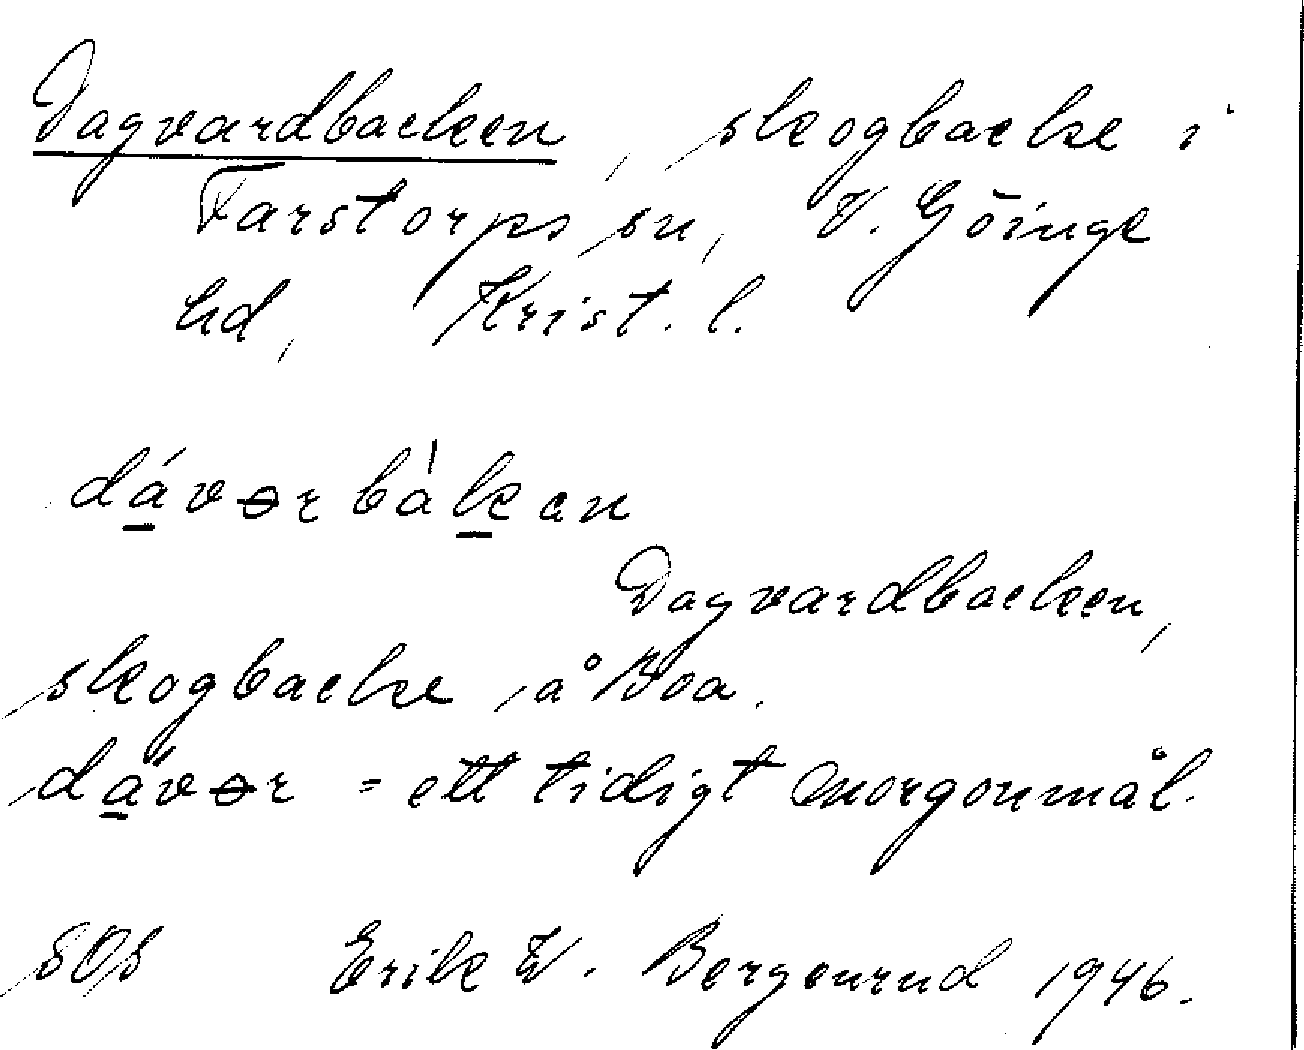 Dagvardbacken, skogbacke i
Farstorps sn, V. Göinge
hd, Krist. l.
dávərbàkan
Dagvardbacken,
skogbacke å Boa.
dävər = ett tidigt morgonmål.
SOS Erik W. Bergenrud 1946.